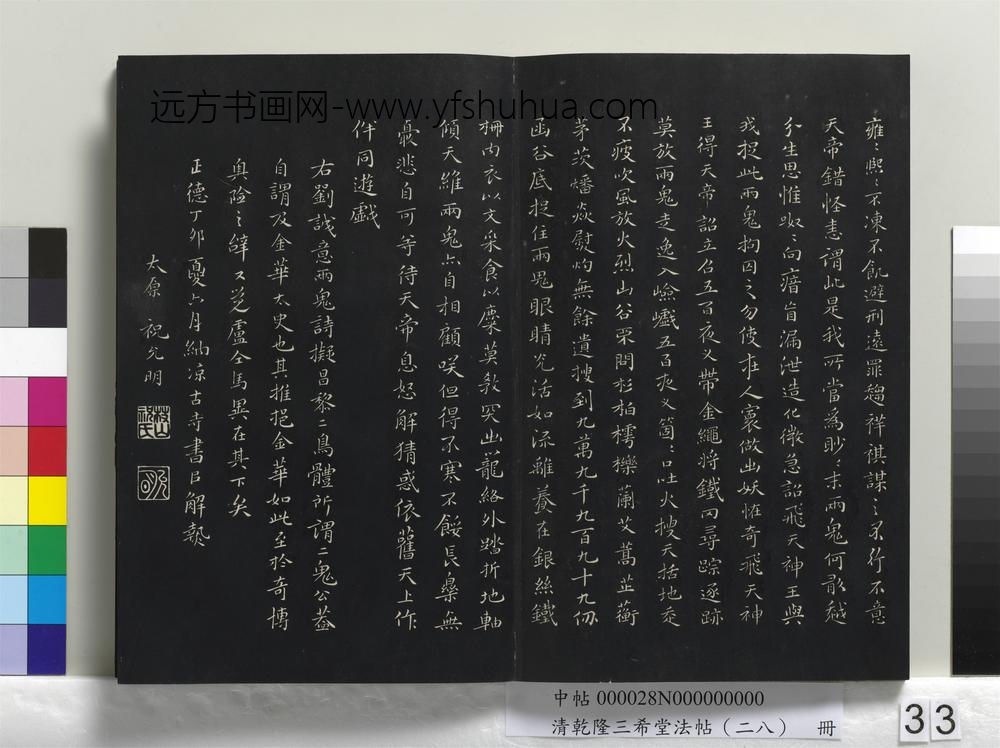 远方书画网-www.yfshuhua.com
雍〻熙〻不凍不飢避刑遠罪趨祥祺謀〻未行不意
天帝錯怪恚謂此是我所當為眇〻末兩鬼何敢越
分生思惟呶〻向瘖盲漏泄造化微急詔飛天神王與
我捉此兩鬼拘囚之勿使在人寰做出妖怪奇飛天神
王得天帝詔立召五百夜义帶金繩將鐵网尋踪逐跡
莫放兩鬼走逸入嶮巇五百夜义箇〻口吐火搜天括地走
不疲吹風放火烈山谷不問杉柏樗櫟蘭艾蒿芷蘅
茅茨燔焱熨灼無餘遺搜到九萬九千九百九十九仞
幽谷底捉住兩鬼眼睛光活如流離養在銀絲鐵
柵內衣以文采食以糜莫教突出籠絡外踏折地軸
傾天維兩鬼亦自相顧咲但得不寒不餒長樂無
憂悲自可等待天帝息怒解猜惑依舊天上作
仵同遊戲
右劉誠意兩鬼詩擬昌黎二鳥體所謂二鬼公蓋
自謂及金華太史也其推挹金華如此至於奇博
奥險之辭又是盧仝馬異在其下矣
正德丁卯憂六月納凉古寺書以解熱
太原 祝允明
枝山
祝氏
中帖 000028N000000000
清乾隆三希堂法帖（二八） 冊
33